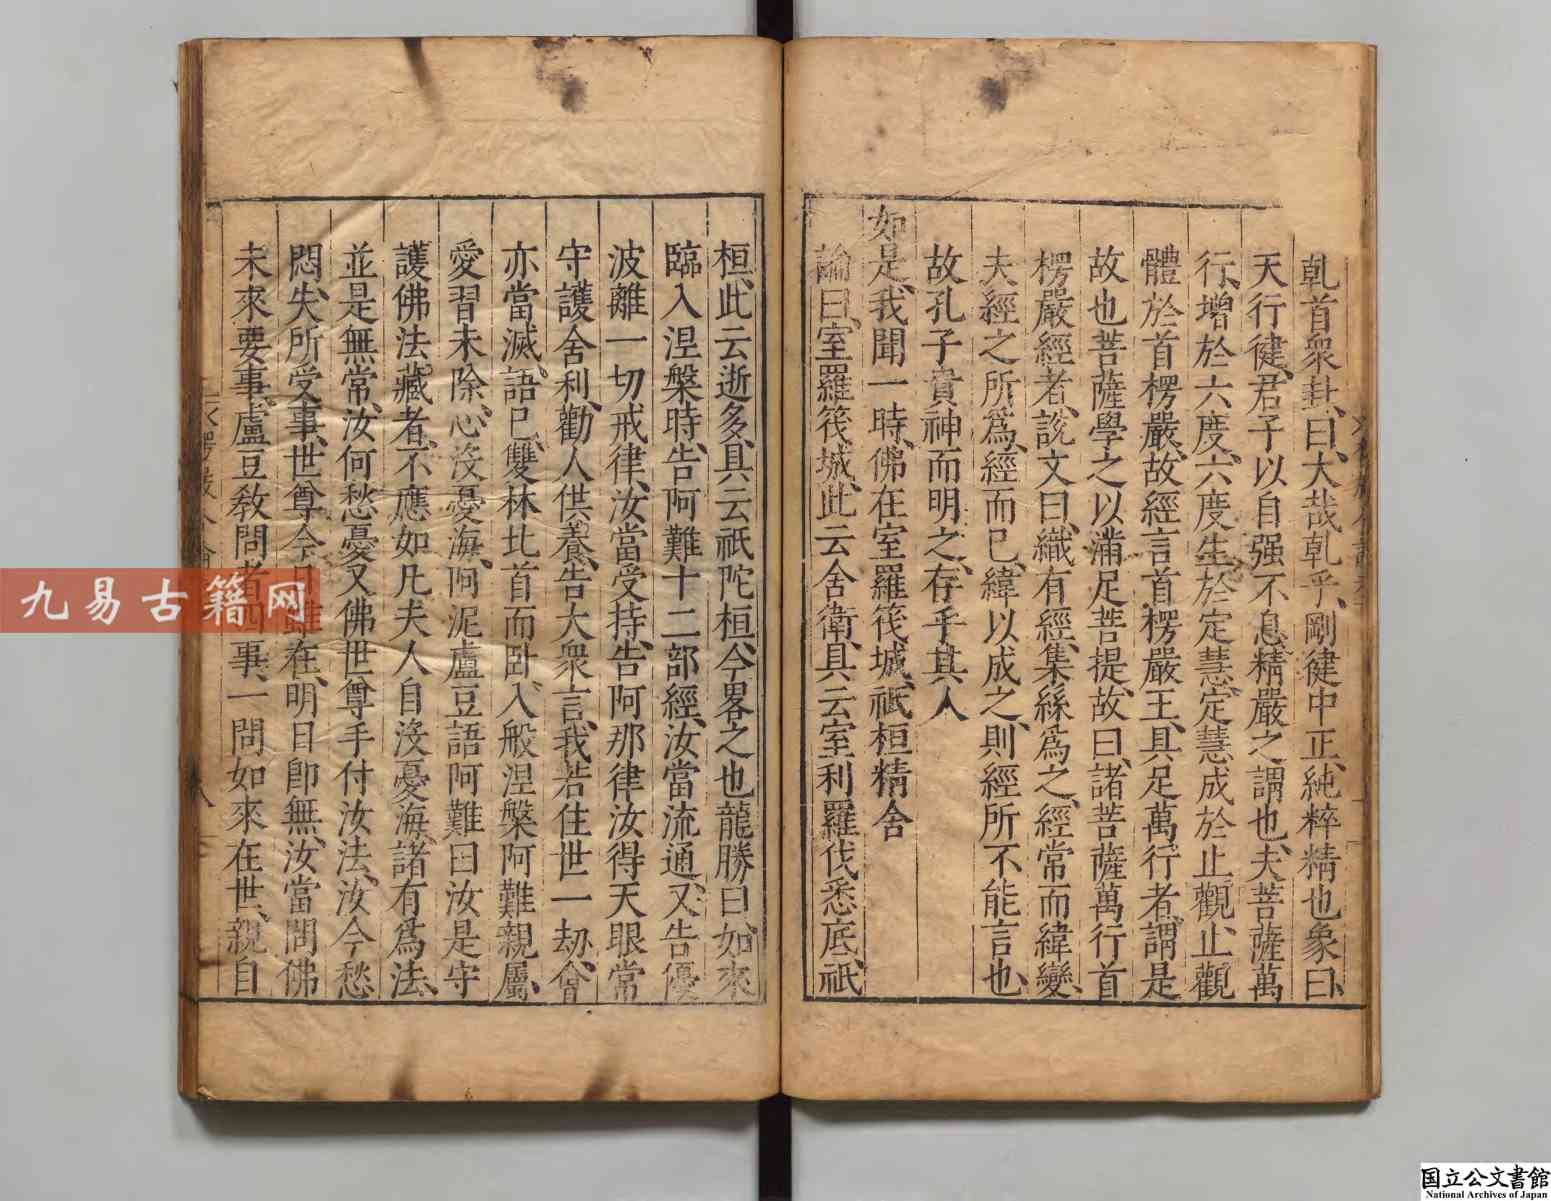 乹首衆卦曰大哉乹乎剛健中正純粹精也象曰
天行健君子以自强不息精嚴之謂也夫菩薩萬
行增於六度六度生於定慧定慧成於止觀止觀
體於首楞嚴故經言首楞嚴王具足萬行者謂是
故也菩薩學之以滿足菩提故曰諸菩薩萬行首
楞嚴經者說文曰織有經集絲爲之經常而緯變
夫經之所爲經而已緯以成之則經所不能言也
故孔子貴神而明之存乎其人
如是我聞一時佛在室羅筏城祇桓精舍
論曰室羅筏城此云舍衛具云室利羅伐悉底祇
桓此云逝多具云祇陀桓今畧之也龍勝曰如來
臨入涅槃時告阿難十二部經汝當流通又告優
波離一切戒律汝當受持告阿那律汝得天眼常
守護舍利勸人供養告大衆言我若住世一劫會
亦當滅語已雙林北首而卧入般涅槃阿難親屬
愛習未除心沒憂海阿泥盧豆語阿難曰汝是守
護佛法藏者不應如凡夫人自沒憂海諸有爲法
並是無常汝何愁憂又佛世尊手付汝法汝今愁
悶失所受事世尊今日雖在明日卽無汝當問佛
未來要事盧豆敎問者四事一問如來在世親自
九易古籍网
国立公文書館
National Archives of Japan